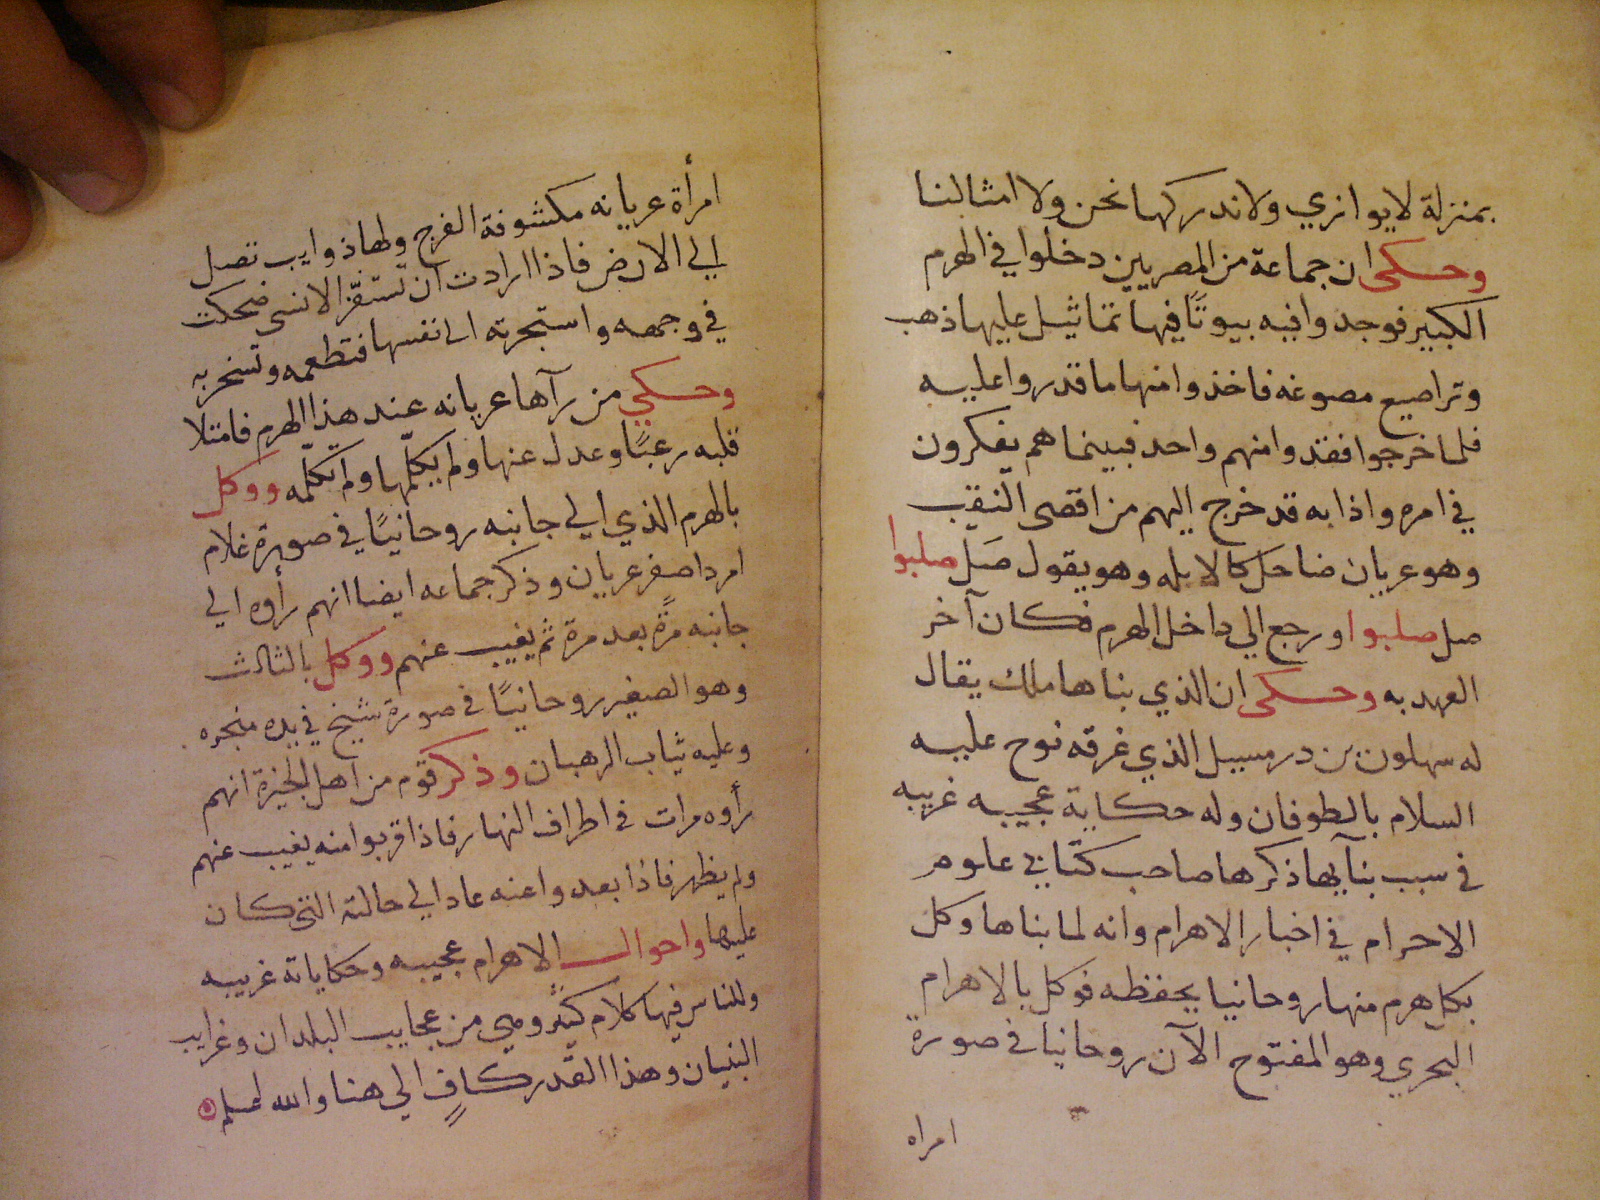 بمنزلة لا يوازي ولا ندركها نحن ولا امثالنا
وحكى ان جماعة من المصريين دخلوا في الهرم
الكبير فوجدوا فيه بيوتًا فيها تماثيل عليها ذهب
وتراصيع مصوغه فاخذوا منها ما قدروا عليه
فلما خرجوا فقدوا منهم واحد فبينما هم يفكرون
في امره واذا به قد خرج اليهم من اقصى النقب
وهو عريان ضاحك كالابله وهو يقول صَل صلبوا
صل صلبوا ورجع الي داخل الهرم فكان آخر
العهد به وحكى ان الذي بناها ملك يقال
له سهلون بن درمسيل الذي غرقه نوح عليه
السلام بالطوفان وله حكاية عجيبه غريبه
في سبب بنآيها ذكرها صاحب كتابي علوم
الاحرام في اخبار الاهرام وانه لما بناها وكل
بكل هرم منها روحانيا يحفظه فوكل بالاهرام
البحري وهو المفتوح الآن روحانيا في صورة
امراه
امرأة عريانه مكشوفة الفرج ولها ذوايب تصل
الي الارض فاذا ارادت ان تستفزّ الانسي ضحكت
في وجهه واستجرته الى نفسها فتطعمه وتسخر به
وحكي من رآها عريانه عند هذا الهرم فامتلا
قلبه رعبًا وعدل عنها ولم يكلّمها ولم تكلّمه ووكل
بالهرم الذي الي جانبه روحانيًا في صورة غلام
امرد اصفر عريان وذكر جماعه ايضا انهم رأوه الي
جانبه مرةً بعد مرة ثم يغيب عنهم ووكل بالثالث
وهو الصغير روحانيًا في صورة شيخ في يده مبخره
وعليه ثياب الرهبان وذكر قوم من اهل الجيزة انهم
رأوه مرات في اطراف النهار فاذا قربوا منه يغيب عنهم
ولم يظهر فاذا بعدوا عنه عاد الي حالته التي كان
عليها واحوال الاهرام عجيبه وحكاياته غريبه
وللناس فيها كلام كثير وهي من عجايب البلدان وغرايب
البنيان وهذا القدر كافٍ الي هنا والله اعلم